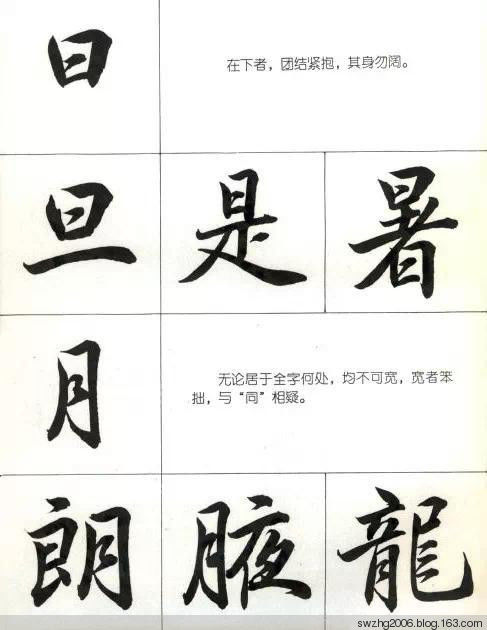 日
在下者，团结紧抱，其身勿阔。
旦 是 暑
月
无论居于全字何处，均不可宽，宽者笨
拙，与“同”相疑。
朗 腋 龍
swzhg2006.blog.163.com